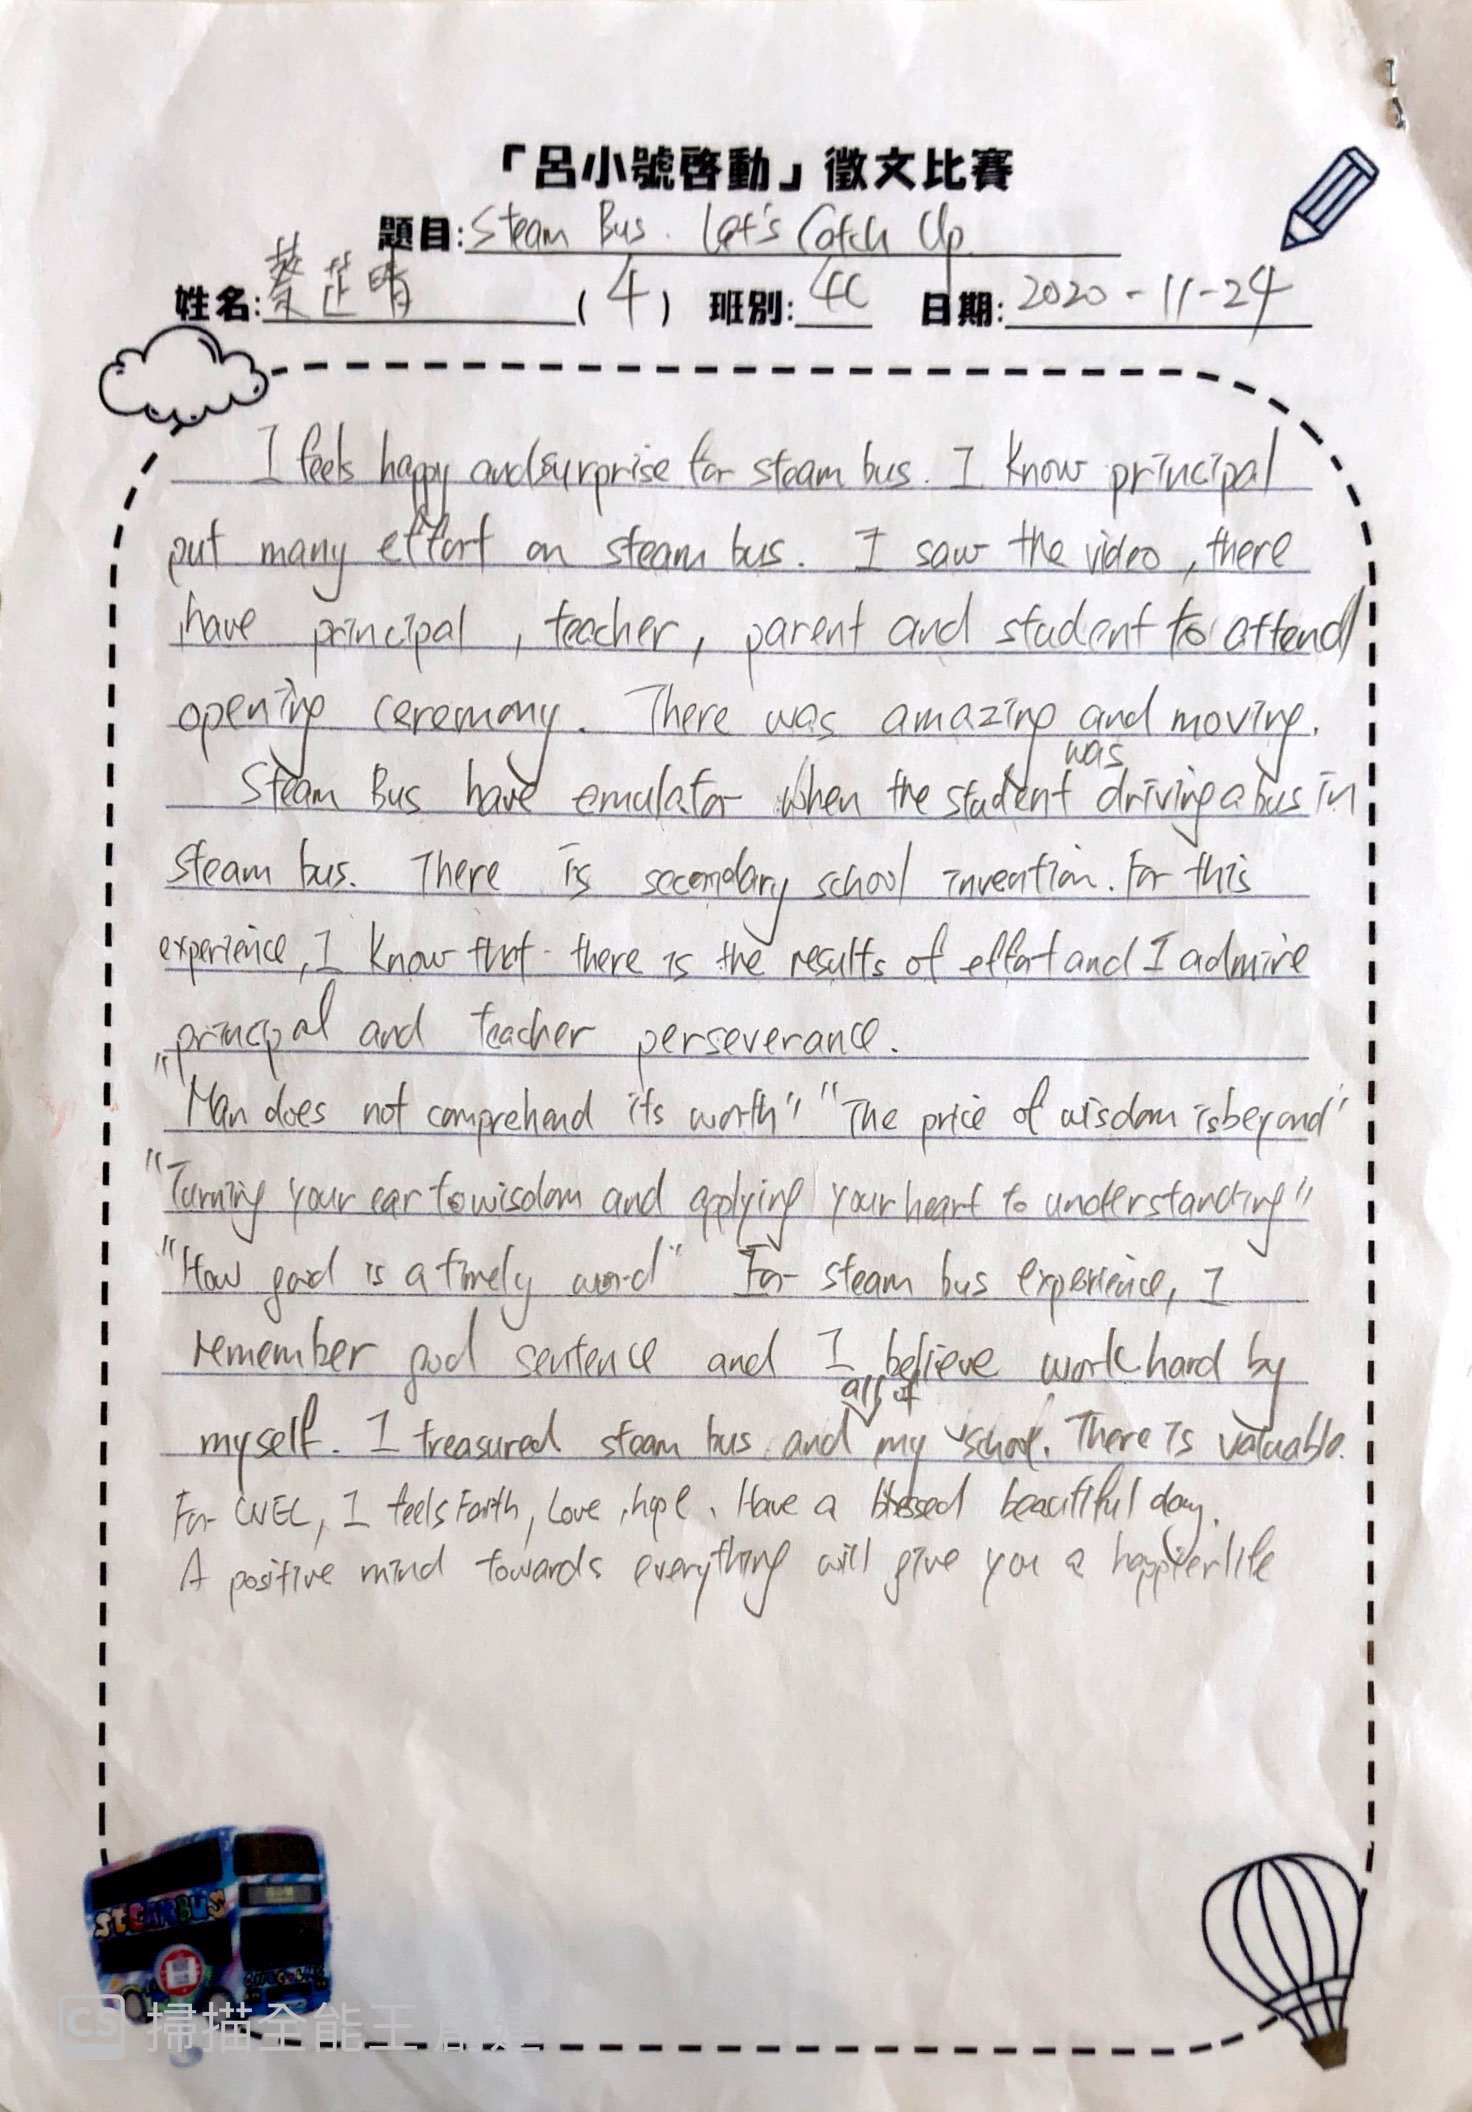 「呂小號啓動」徵文比賽
題目:Steam Bus. Let's Catch Up
姓名:蔡芷晴 (4) 班別:4C 日期:2020-11-24
I feels happy and surprise for steam bus. I know principal
put many effort on steam bus. I saw the video, there
have principal, teacher, parent and student to attend
opening ceremony. There was amazing and moving.
was
Steam Bus have emulator when the student driving a bus in
steam bus. There is secondary school invention. For this
experience, I know that there is the results of effort and I admire
principal and teacher perseverance.
"Man does not comprehend its worth" "The price of wisdom is beyond"
"Turning your ear to wisdom and applying your heart to understanding"
"How good is a timely word" For steam bus experience, I
remember good sentence and I believe work hard by
all of
myself. I treasured steam bus and my school. There is valuable.
For CNEC, I feels Faith, Love, hope. Have a blessed beautiful day.
A positive mind towards everything will give you a happier life
STEAM BUS
CS 掃描全能王 創建